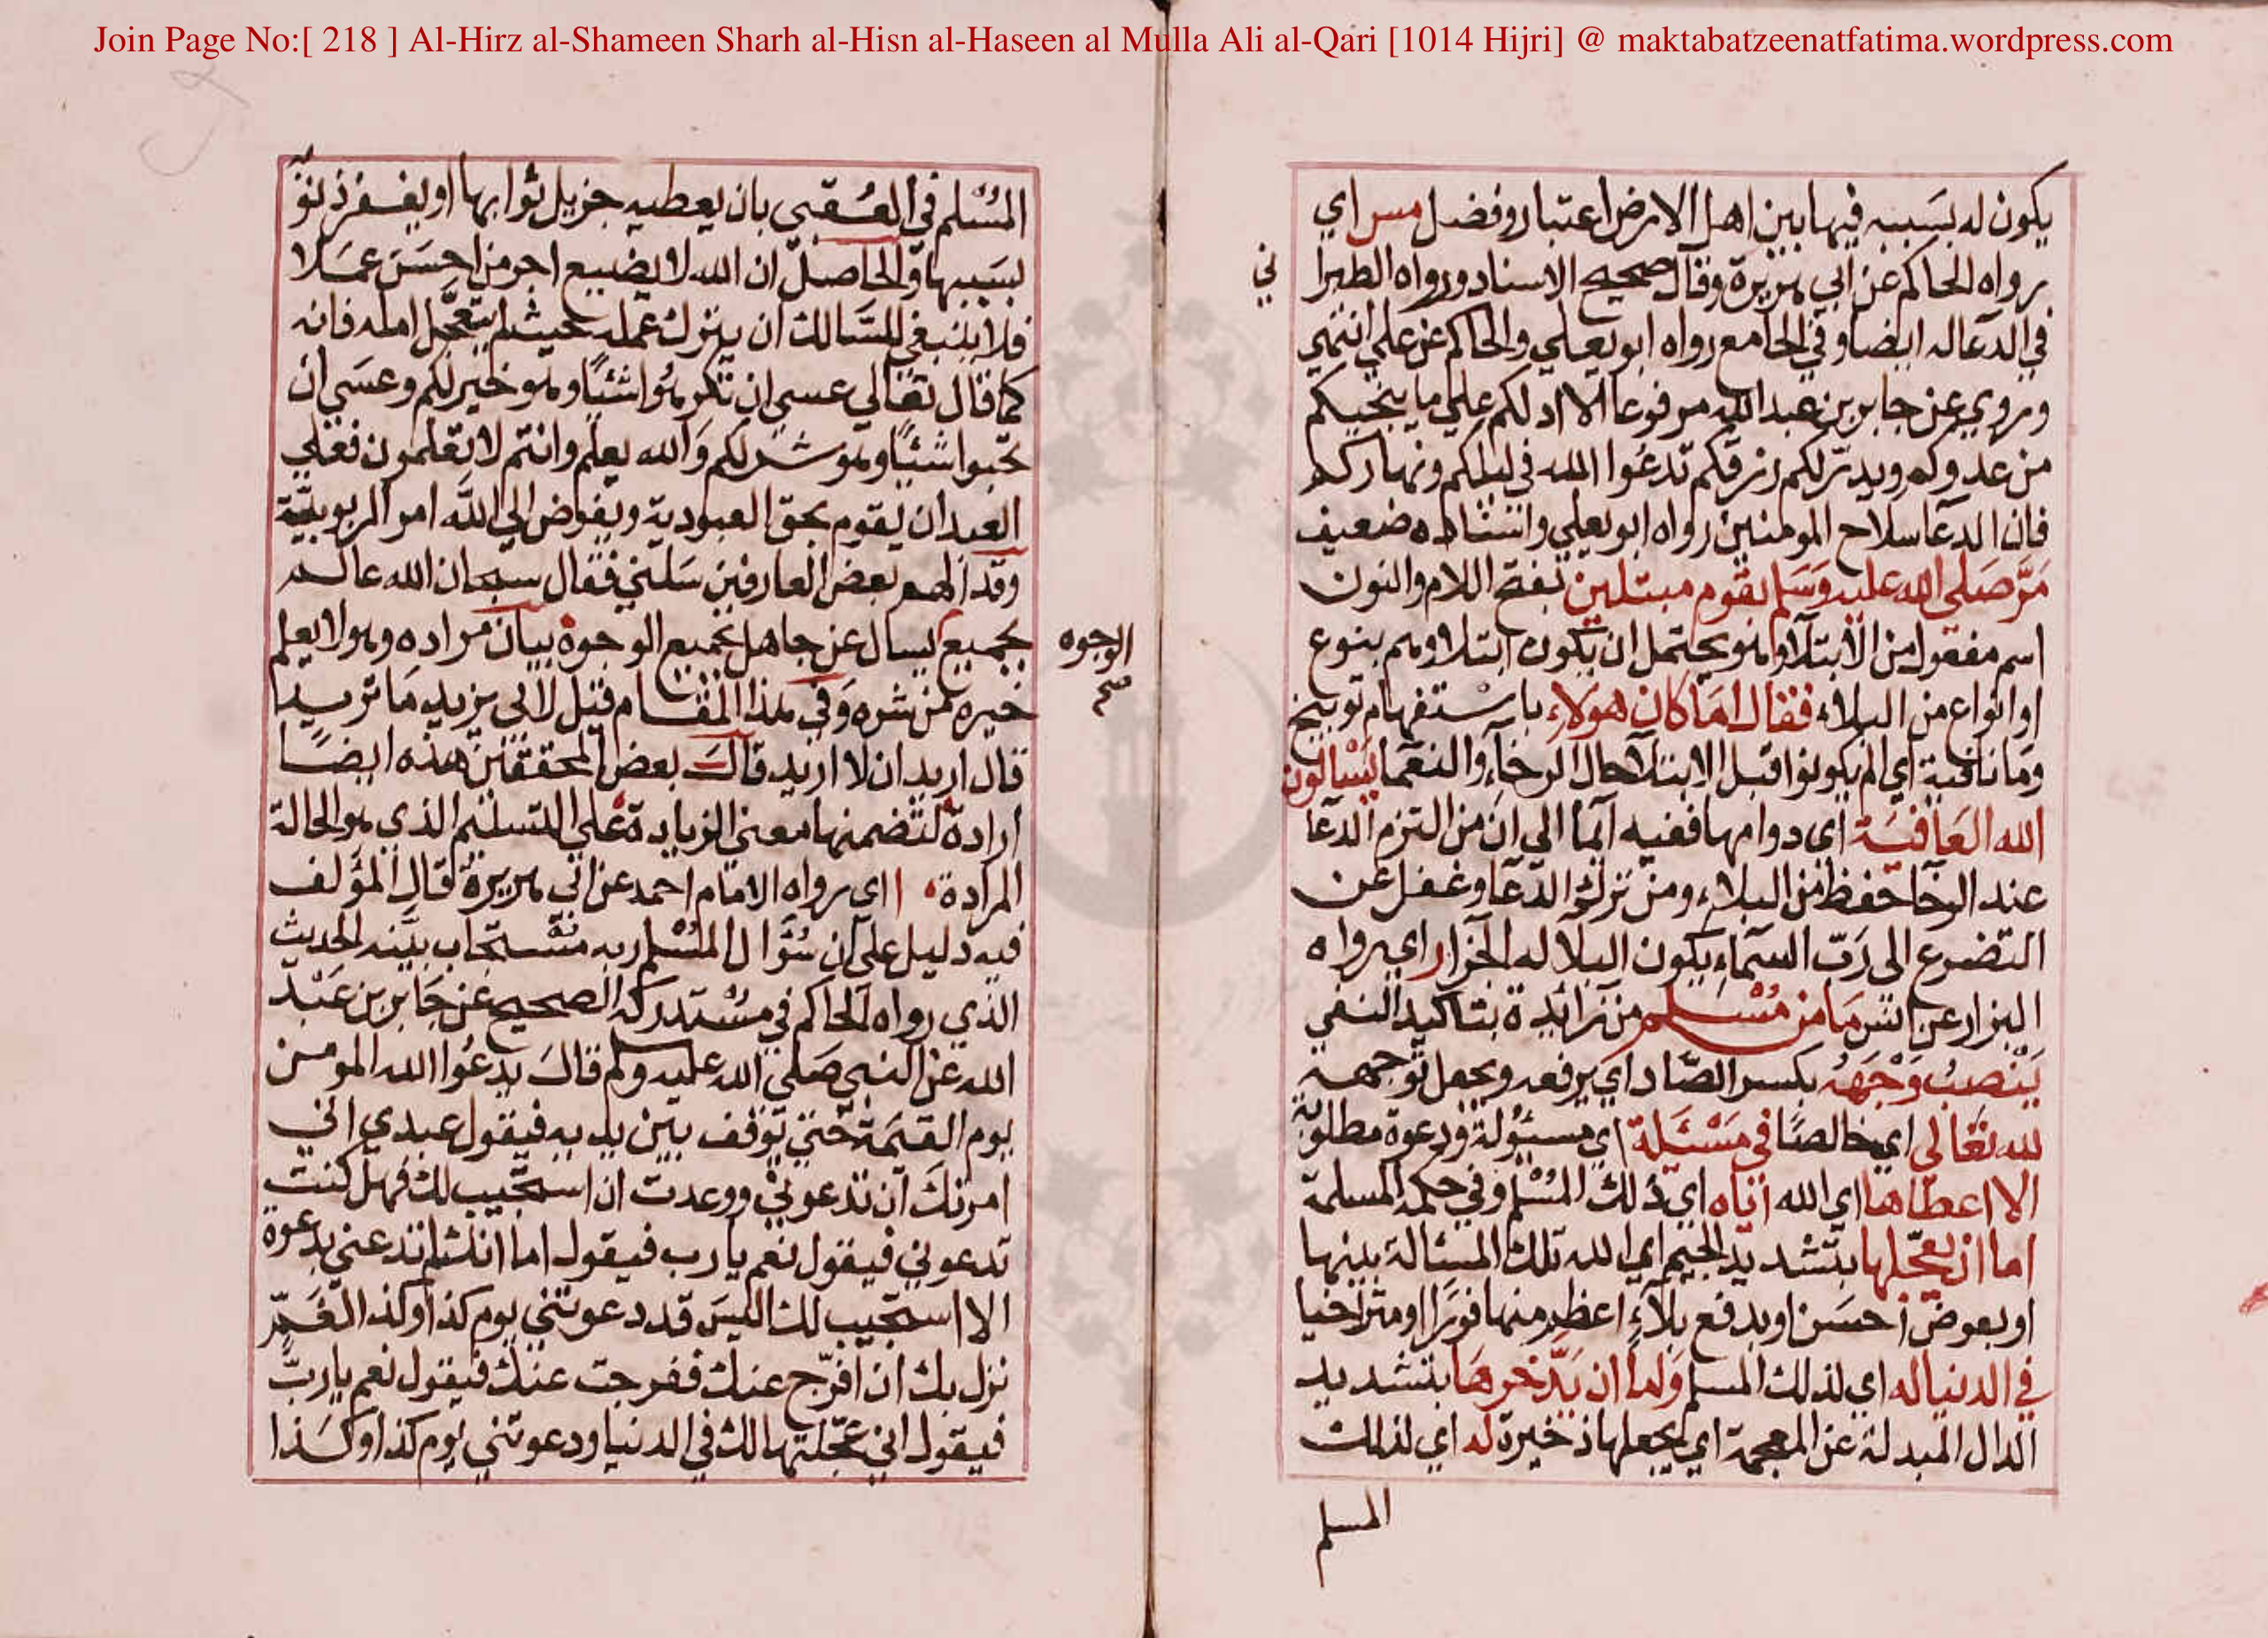 Join Page No:[ 218 ] Al-Hirz al-Shameen Sharh al-Hisn al-Haseen al Mulla Ali al-Qari [1014 Hijri] @ maktabatzeenatfatima.wordpress.com
يكون له بسَببه فيها بين اهل الارض اعتبار وفضل مس اي
رواه الحاكم عن ابي هريرة وقال صحيح الاسناد ورواه الطبرا
ني
في الدعا له ايضا وفي الجامع رواه ابو يعلي والحاكم عن علي انتهي
وروي عن جابر بن عبد الله مرفوعا الا ادلكم علي ما ينجيكم
من عدوكم ويدرّ لكم رزقكم تدعُوا الله في ليلكم ونهاركم
فان الدعآ سلاح المومنين رواه ابو يعلي واسناده ضعيف
مَرّ صَلى الله عليه وسَلم بقوم مبتلين بفتح اللام والنون
اسم مفعول من الابتلآ وهو يحتمل ان يكون ابتلاوهم بنوع
او انواع من البلاء فقال امَا كان هولاء باستفهام توبيخ
ومَا نافية اي الم يكونوا قبل الابتلآ حال الرخآء والنعما يَسْالون
الله العَافيَة اي دوامها ففيه ايمآ الي ان من التزم الدعآ
عند الرخآ حفظ من البلاء ومن ترك الدّعآ وغفل عن
التضرع الى رَبّ السمآء يكون البلآ له الجزا ر اي رواه
البزار عن انس مَا من مُسْلم من زائدة بتاكيد النفي
يَنْصِبُ وَجْهَهُ بكسر الصّاد اي يرفعه ويجعل توجهه
لله تعَالى اي خالصًا في مَسْئَلة اي مسئولة ودعوة مطلوبة
الا اعطاها اي الله اياه اي ذلك المُسْلم وفي حكمه المسلمة
اما ان يعجّلها بتشديد الجيم اي الله تلك المسالة بعينها
او بعوض احسَن او بدفع بلآء اعظم منها فورًا او متراخيا
في الدنيا له اي لذلك المسلم وَاما ان يَدّخرهَا بتشديد
الدال المبدلة عن المعجمة اي يجعلها ذخيرة له اي لذلك
المسلم
المُسْلم في العُقبى بان يعطيه جزيل ثوابها او يغفر ذنو
بسَببها وَالحاصل ان الله لا يضيع اجر من احسَن عمَلا
فلا ينبغي للسَالك ان يترك عمله حيث لم يتعَجل امله فانه
كما قال تعَالي عسي ان تكرهُوا شئيًا وهو خير لكم وعسَي ان
تحبوا شئيًا وهو شر لكم وَالله يعلم وانتم لا تعلمون فعلي
العبد ان يقوم بحق العبودية ويفوض الي اللّه امر الربوبيّة
وقد الهم بعض العارفين سَلني فقال سبحان الله عالم
بجميع
الوجوه
صح
يسال عن جاهل بجميع الوجوه بيان مراده وهو لا يعلم
خيره من شره وَفي هذا المقام قيل لابي يزيد مَا تريد
قال اريد ان لا اريد قالَ بعض المحققين هذه ايضًا
ارادة لتضمنها معني الزيادة علي التسليم الذي هو الحالة
المرادة ا اي رواه الامَام احمد عن ابي هريرة قال المؤلف
فيه دليل علي ان سُؤال المُسْلم ربه مسْتجاب بيّنه الحديث
الذي رواه الحاكم في مسْتدركه الصحيح عن جَابر بن عَبْد
الله عن النبي صَلي الله عليه وسلم قالَ يدعُوا الله المومن
يوم القيمَة حتي يوقف بين يديه فيقول عبدي اني
امرتك ان تدعوني ووعدت ان استجيب لك فهل كنت
تدعوني فيقول نعم يا رب فيقول اما انك لم تدعني بدعوة
الا استجيب لك اليسَ قد دعوتني يوم كذا وكذا لغَمّ
نزل بك ان افرّج عنك ففرجت عنك فيقول نعم يا ربّ
فيقول اني عجّلتها لك في الدنيا ودعوتني يوم كذا وكذا